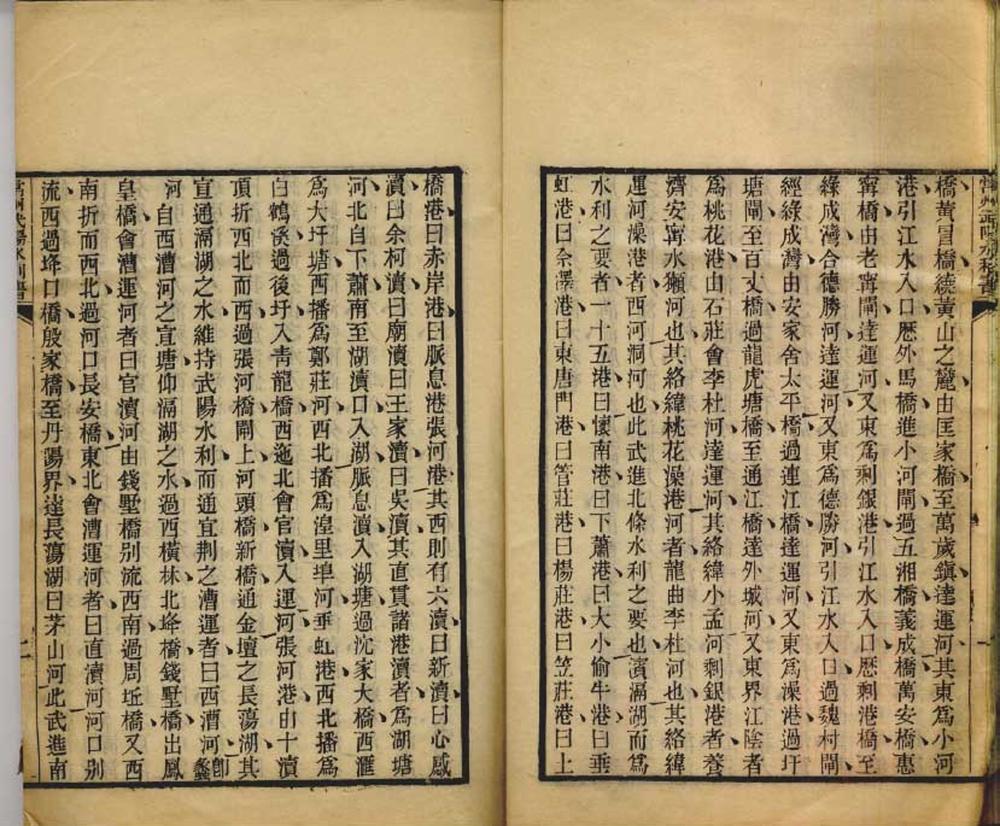 橋黃冒橋繞黃山之麓由匡家橋至萬歲鎭達運河其東爲小河
港引江水入口歴外馬橋進小河閘過五湘橋義成橋萬安橋惠
寧橋由老寧閘達運河又東爲剩銀港引江水入口歴剩港橋至
綠成灣合德勝河達運河又東爲德勝河引江水入口過魏村閘
經綠成灣由安家舍太平橋過連江橋達運河又東爲澡港過圩
塘閘至百丈橋過龍虎塘橋至通江橋達外城河又東界江陰者
爲桃花港由石莊會李杜河達運河其絡緯小孟河剩銀港者養
濟安寗水獺河也其絡緯桃花澡港河者龍曲李杜河也其絡緯
運河澡港者西河洞河也此武進北條水利之要也濱滆湖而爲
水利之要者一十五港曰懷南港曰下蕭港曰大小偷牛港曰垂
虹港曰佘澤港曰東唐門港曰管莊港曰楊莊港曰笠莊港曰上
橋港曰赤岸港曰脈息港張河港其西則有六瀆曰新瀆曰心感
瀆曰余柯瀆曰廟瀆曰王家瀆曰吳瀆其直貫諸港瀆者爲湖塘
河北自下蕭南至湖瀆口入湖脈息瀆入湖塘過沈家大橋西滙
爲大圩塘西播爲鄭莊河西北播爲湟里埠河垂虹港西北播爲
白鶴溪過後圩入青龍橋西迤北會官瀆入運河張河港由十瀆
頂折西北而西過張河橋閘上河頭橋新橋通金壇之長蕩湖其
宣通滆湖之水維持武陽水利而通宜荆之漕運者曰西漕河卽蠡
河自西漕河之宜塘仰滆湖之水過西橫林北垰橋錢墅橋出鳳
皇橋會漕運河者曰官瀆河由錢墅橋别流西南過周坵橋又西
南折而西北過河口長安橋東北會漕運河者曰直瀆河河口别
流西過垰口橋殷家橋至丹陽界達長蕩湖曰茅山河此武進南